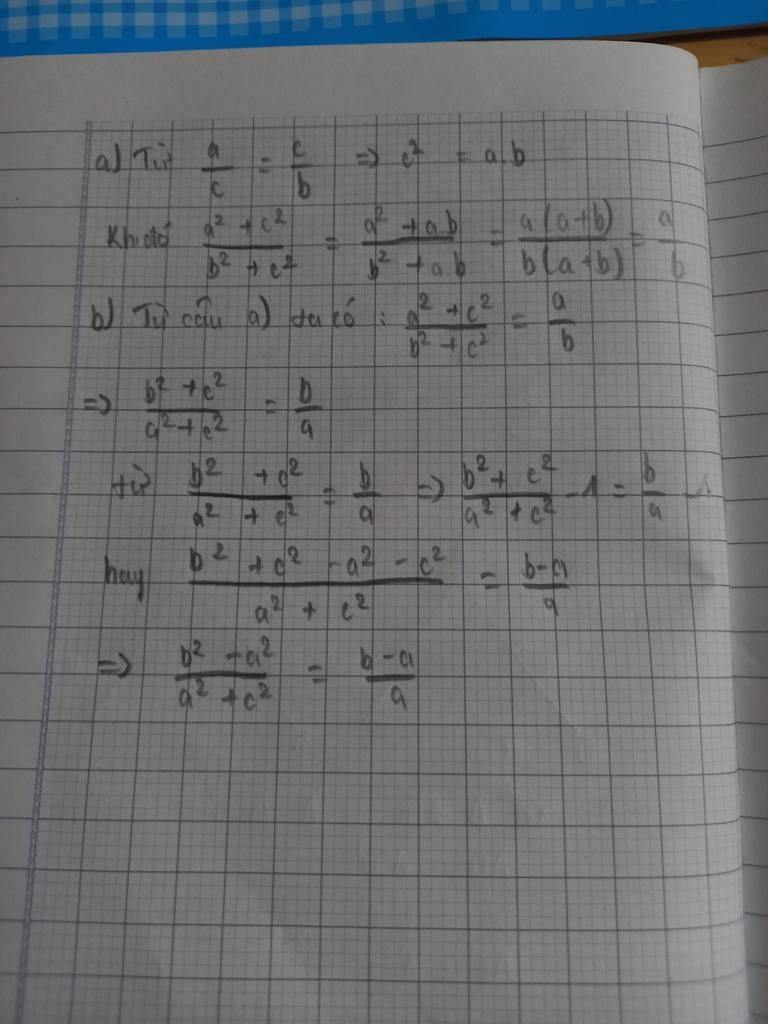 a) Từ a/c = c/b => c² = a.b
Khi đó (a² + c²)/(b² + c²) = (a² + a.b)/(b² + a.b) = a(a+b)/b(a+b) = a/b
b) Từ câu a) ta có : (a² + c²)/(b² + c²) = a/b
=> (b² + c²)/(a² + c²) = b/a
từ (b² + c²)/(a² + c²) = b/a => (b² + c²)/(a² + c²) - 1 = b/a - 1
hay (b² + c² - a² - c²)/(a² + c²) = (b-a)/a
=> (b² - a²)/(a² + c²) = (b-a)/a